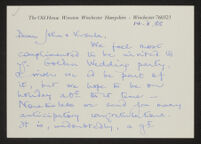 The Old House Wonston Winchester Hampshire · Winchester 760323
Dear John & Ursula,
We feel most
complimented to be invited to
yr. Golden Wedding party.
I wish we'd be part of
it, but we hope to be on
holiday at that time -
Nonetheless we send you many
anticipatory congratulations.
It is, undoubtedly, a gt.